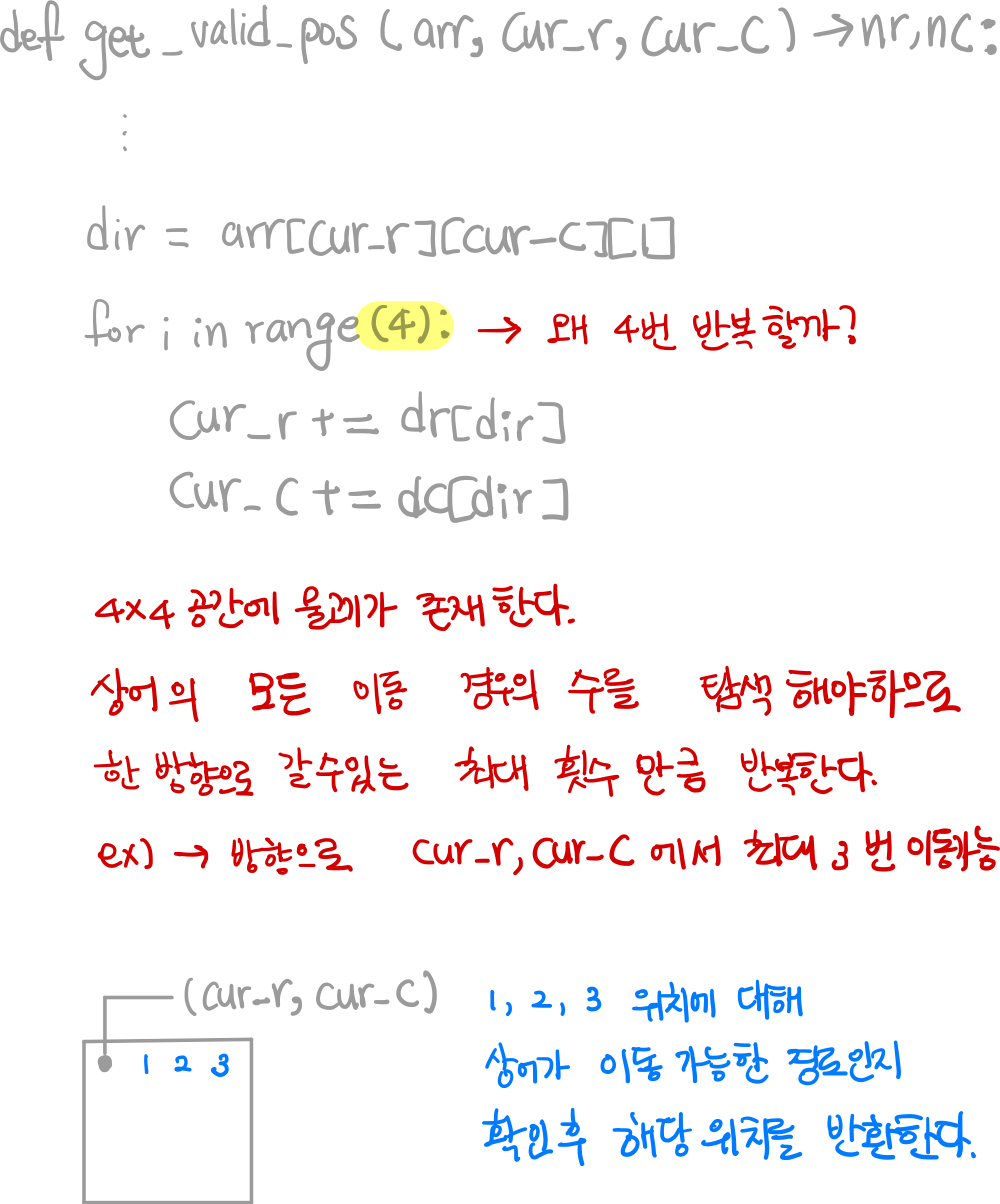 def get_valid_pos (arr, cur_r, cur_c) → nr, nc:
⋮
dir = arr[cur_r][cur-c][1]
for i in range (4): → 왜 4번 반복할까?
cur_r += dr[dir]
cur_c += dc[dir]
4x4 공간에 물고기가 존재한다.
상어의 모든 이동 경우의 수를 탐색해야하므로
한 방향으로 갈수있는 최대 횟수 만큼 반복한다.
ex) → 방향으로 cur_r, cur_c 에서 최대 3번 이동가능
(cur_r, cur_c)
1, 2, 3 위치에 대해
1 2 3
상어가 이동 가능한 경로인지
확인후 해당 위치를 반환한다.